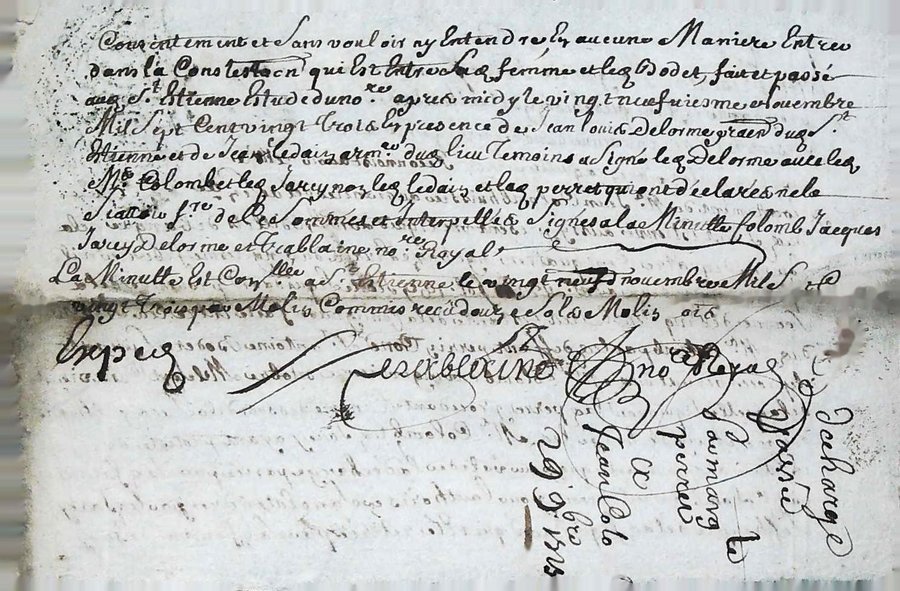 Consentement et sans vouloir ny Entendre En aucune Maniere Entrer
dans la Contestaon qui Est Entre sa femme et led Bodet, fait et passé
aud St Estienne Estude du nore apres midy le vingt neufuiesme novembre
Mil sept Cent vingt trois En presence de Jean louis Delorme praen dud St
Etienne et de Jean ledais armer dud lieu Temoins a signé led Delorme avec led
Me Colomb et led Jarey non led ledais et led perret qui ont declares ne le
sçavoir fre de Ce sommes et interpellés Signes a la Minutte Colomb Jacques
Jarey Delorme et Trablaine nore Royal
La Minutte Est Conllee a St Etienne le vingt neuf novembre Mil S
vingt trois par Molis Commis reçu douze sols Molis
Exped
Trablaine nore Royal
Descharge
passée
par marg le
perret
a
Jean Colo
29 9bre 1723